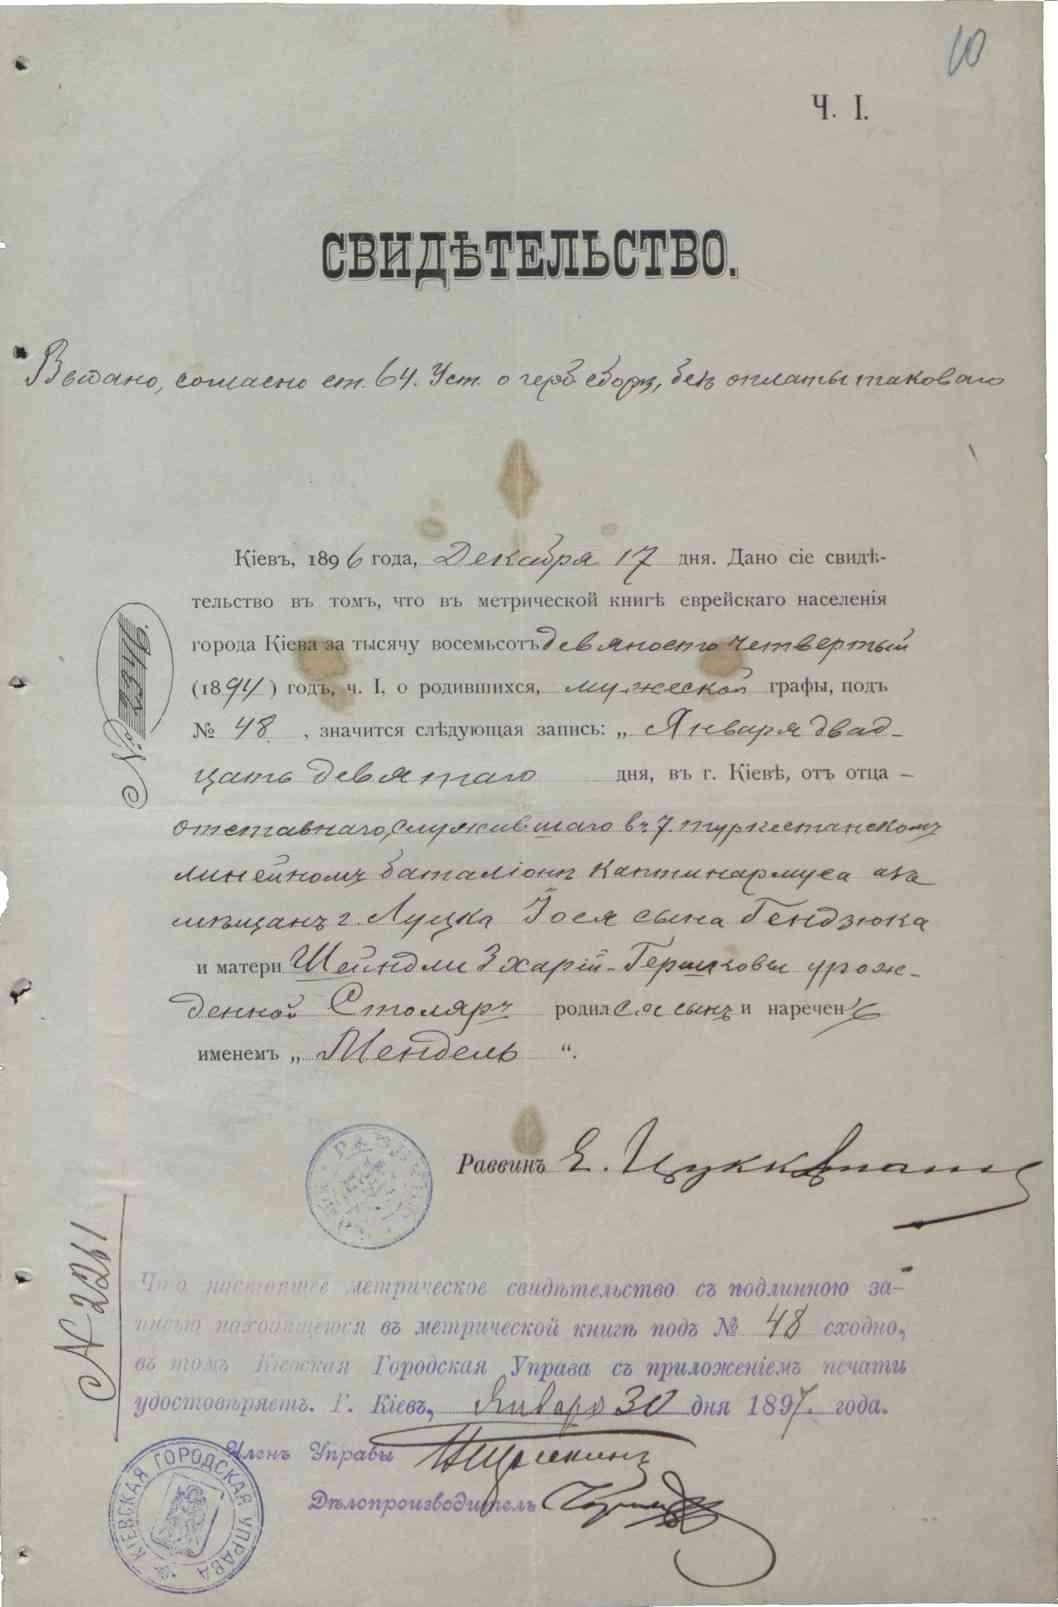 10
Ч. I.
СВИДѢТЕЛЬСТВО.
Выдано, согласно ст. 64. Уст. о герб сборѣ, безъ оплаты таковаго
Кіевъ, 1896 года, Декабря 17 дня. Дано сіе свидѣ-
тельство въ томъ, что въ метрической книгѣ еврейскаго населенія
города Кіева за тысячу восемьсотъ девяносто четвертый
(1894) годъ, ч. I, о родившихся, мужеской графы, подъ
№ 48 , значится слѣдующая запись: „ Января двад-
цать девятаго дня, въ г. Кіевѣ, отъ отца –
отставнаго, служившаго въ 7. туркестанскомъ
линейномъ баталіонѣ каптинармуса изъ
мѣщанъ г. Луцка Іося сына Гендзюка
и матери Шейндли Зхарій-Гершковы урож-
денной Столяръ родился сынъ и нареченъ
именемъ „ Мендель “.
Раввинъ Е. Цуккерманъ
№ 2261
Что настоящее метрическое свидѣтельство съ подлинною за-
писью находящеюся въ метрической книгѣ подъ № 48 сходно,
въ томъ Кіевская Городская Управа съ приложеніемъ печати
удостовѣряетъ. Г. Кіевъ, Января 30 дня 1897. года.
Членъ Управы
Дѣлопроизводитель
КІЕВСКАЯ ГОРОДСКАЯ УПРАВА